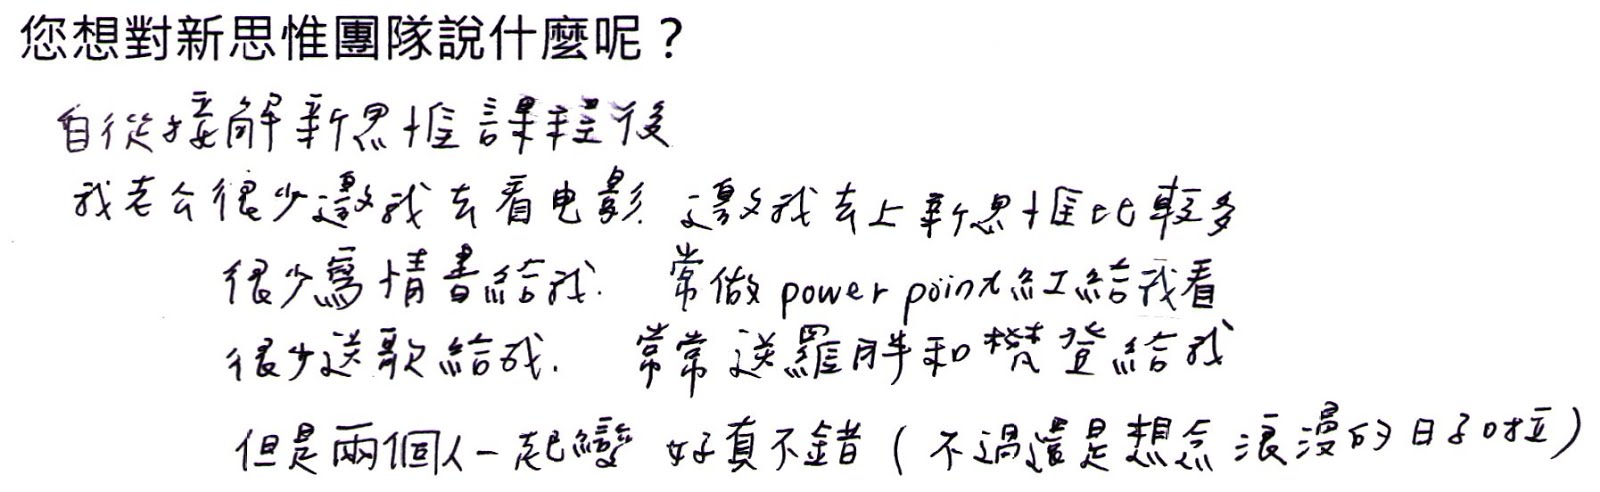 您想對新思惟團隊說什麼呢？
自從接解新思惟課程後
我老公很少邀我去看电影. 邀我去上新思惟比較多
很少寫情書給我. 常做power point 紅給我看
很少送歌給我. 常常送羅胖和樊登給我
但是兩個人一起變好真不錯（不過還是想念浪漫的日子啦）